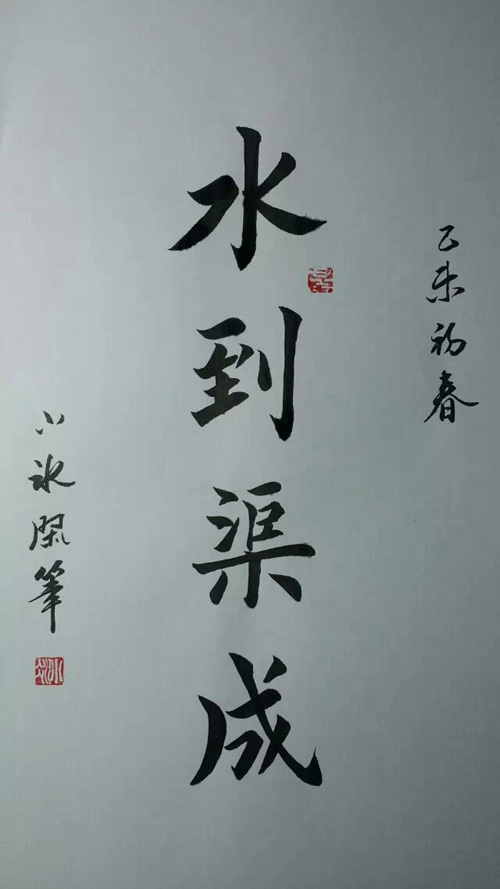 乙未初春
水到渠成
小冰闲笔